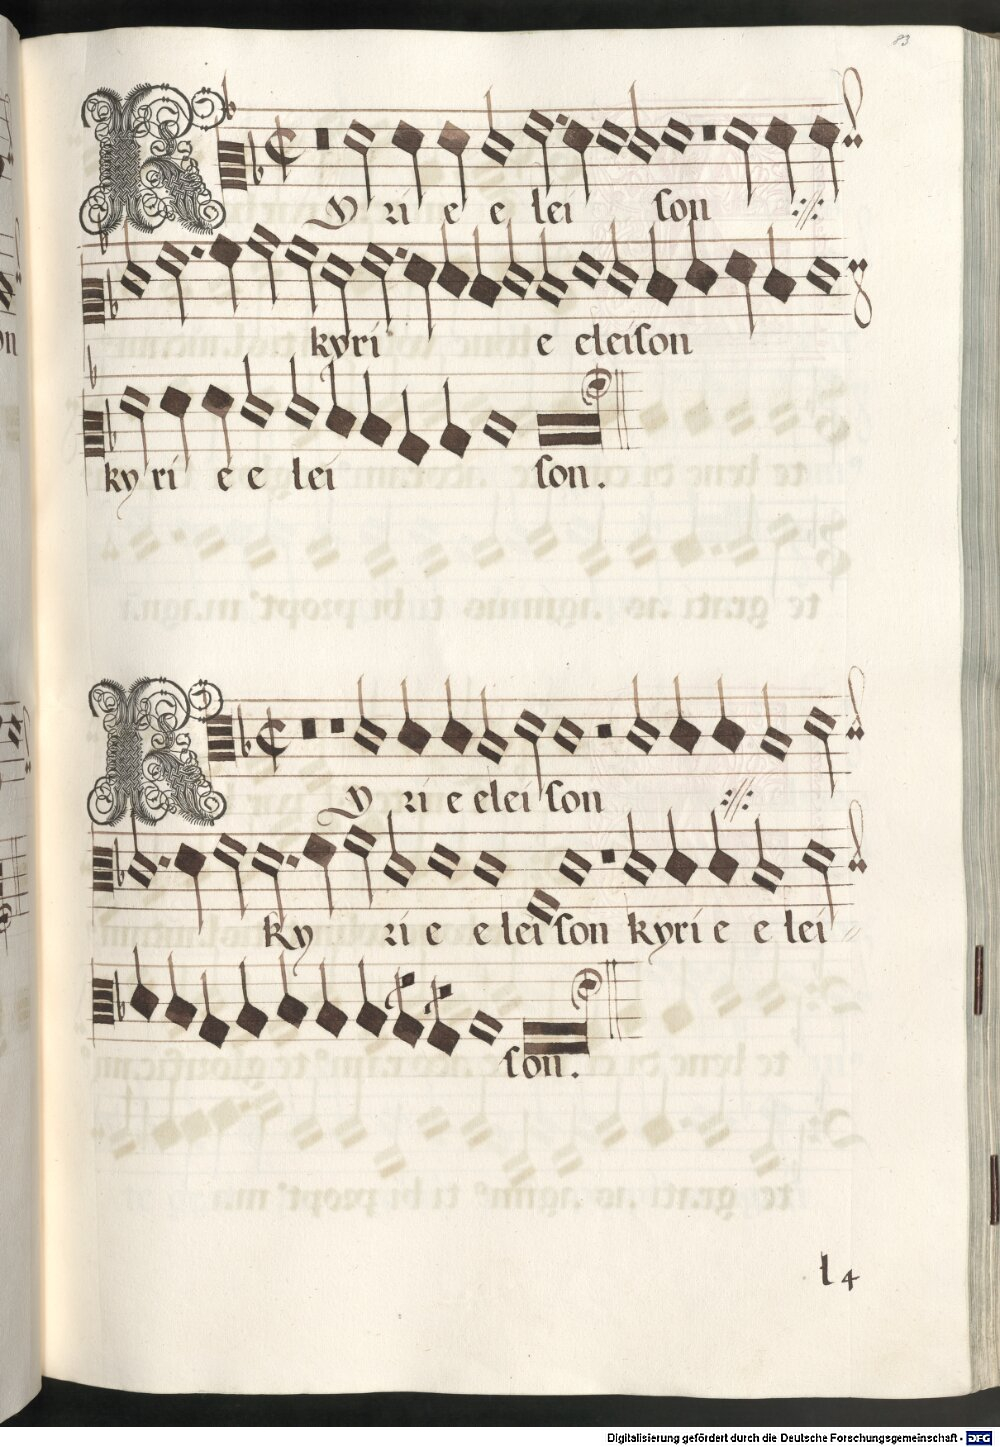 83
Kyri e e lei son
kyri e eleison
ky ri e e lei son.
Kyri e elei son
ky ri e e lei son kyri e e lei
son.
l 4
Digitalisierung gefördert durch die Deutsche Forschungsgemeinschaft - DFG